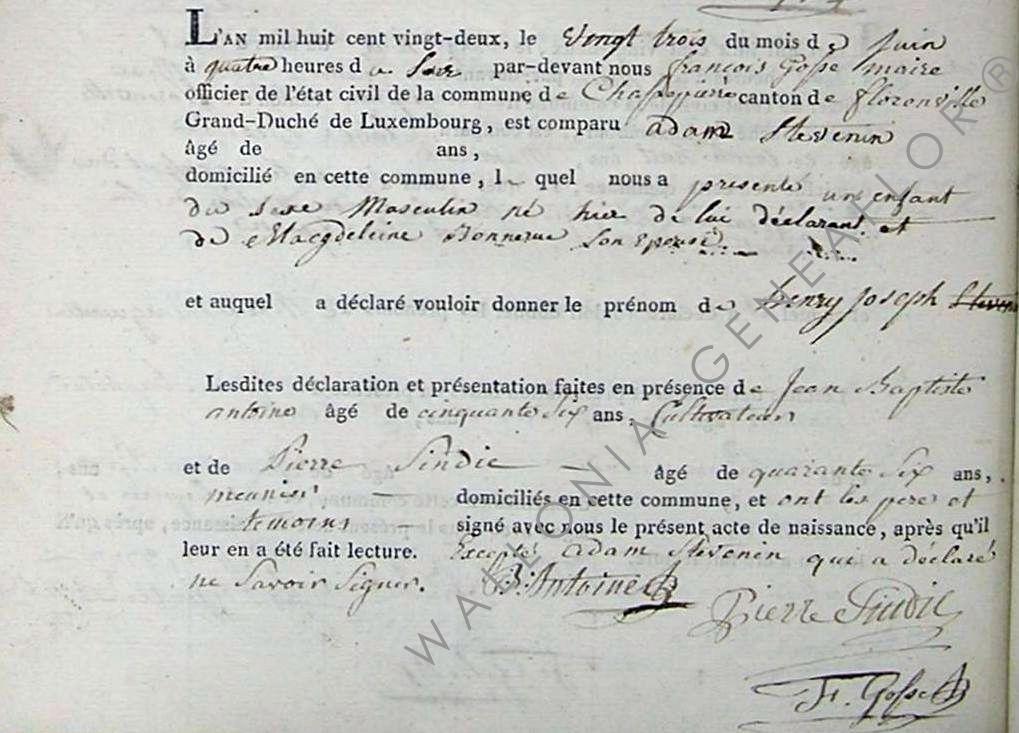 L'AN mil huit cent vingt-deux, le vingt trois du mois de Juin
à quatre heures du Soir par-devant nous françois Gosse maire
officier de l'état civil de la commune de Chassepierre canton de florenville
Grand-Duché de Luxembourg, est comparu adam Stevenin
âgé de ans,
domicilié en cette commune, le quel nous a presenté un enfant
du Sexe Masculin né hier de lui déclarant et
de Magdeleine Bonnerue Son epouse
et auquel a déclaré vouloir donner le prénom de henry joseph
Lesdites déclaration et présentation faites en présence de Jean Baptiste
antoine âgé de cinquante Six ans, Cultivateur
et de Pierre Sindic âgé de quarante Six ans,
meunier domiciliés en cette commune, et ont les pere et
temoins signé avec nous le présent acte de naissance, après qu'il
leur en a été fait lecture. Excepté adam Stevenin qui a déclaré
ne Savoir Signer. B: Antoine
Pierre Sindic
Fr. Gosse
WALLONIA GENEALOR®